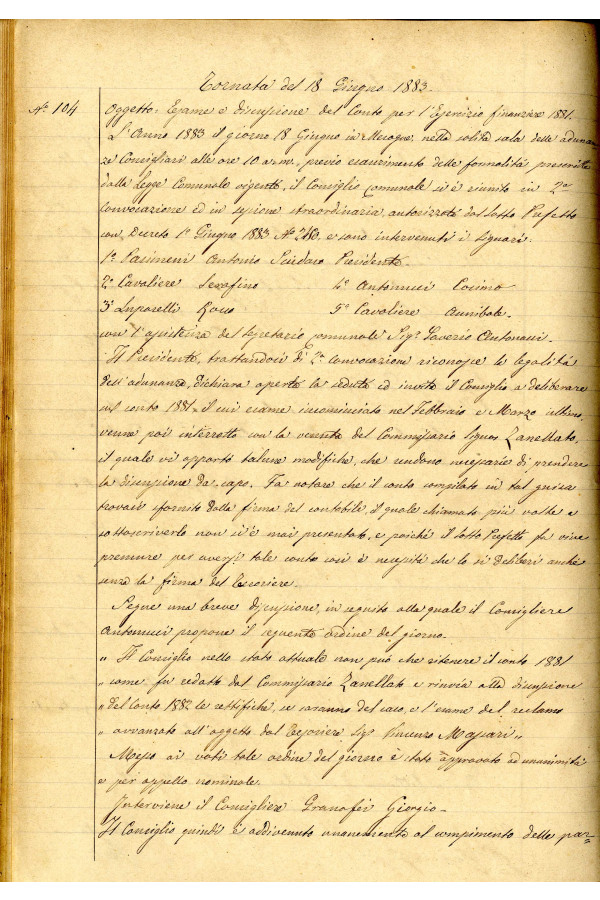 Tornata del 18 Giugno 1883.
N.° 104
Oggetto: Esame e discussione del Conto per l'Esercizio finanziere 1881.
L'Anno 1883 il giorno 18 Giugno in Mesagne, nella solita sala delle adunan
ze Consigliari alle ore 10 a.m., previo esaurimento delle formalità prescritte
dalla Legge Comunale vigente, il Consiglio Comunale si è riunito in 2a
Convocazione ed in sessione straordinaria, autorizzata dal Sotto Prefetto
con Decreto 1° Giugno 1883 N.° e sono intervenuti i Signori.
1° Antonio Sindaco Presidente.
2° Cavaliere Serafino 4° Antonucci Cosimo
3° Luparelli Rocco 5° Cavaliere Annibale.
con l'assistenza del Segretario comunale Sig.r Saverio Antonucci.
Il Presidente, trattandosi di 2a Convocazione riconosce la legalità
dell'adunanza, dichiara aperta la seduta ed invita il Consiglio a deliberare
sul conto 1881, il cui esame incominciato nel Febbraio e Marzo ultimo
venne poi interrotto con la venuta del Commissario Signor Zanellato,
il quale vi apportò talune modifiche, che rendono necessario di prendere
la discussione da capo. Fa notare che il conto compilato in tal guisa
trovasi sfornito della firma del contabile, il quale chiamato più volte a
sottoscriverlo non si è mai presentato, e poichè il Sotto Prefetto fa vive
premure per aversi tale conto così è necessità che lo si deliberi anche
senza la firma del Tesoriere.
Segue una breve discussione, in seguito alla quale il Consigliere
Antonucci propone il seguente ordine del giorno.
" Il Consiglio nello stato attuale non può che ritenere il conto 1881
" come fu redatto dal Commissario Zanellato e rinvia alla discussione
" del Conto 1882 le rettifiche, se saranno del caso, e l'esame del reclamo
" avanzato all'oggetto dal Tesoriere Sig.r Vincenzo Massari "
Messo ai voti tale ordine del giorno è stato approvato ad unanimità
e per appello nominale.
Interviene il Consigliere Granafei Giorgio.
Il Consiglio quindi è addivenuto unanimente al compimento delle par=